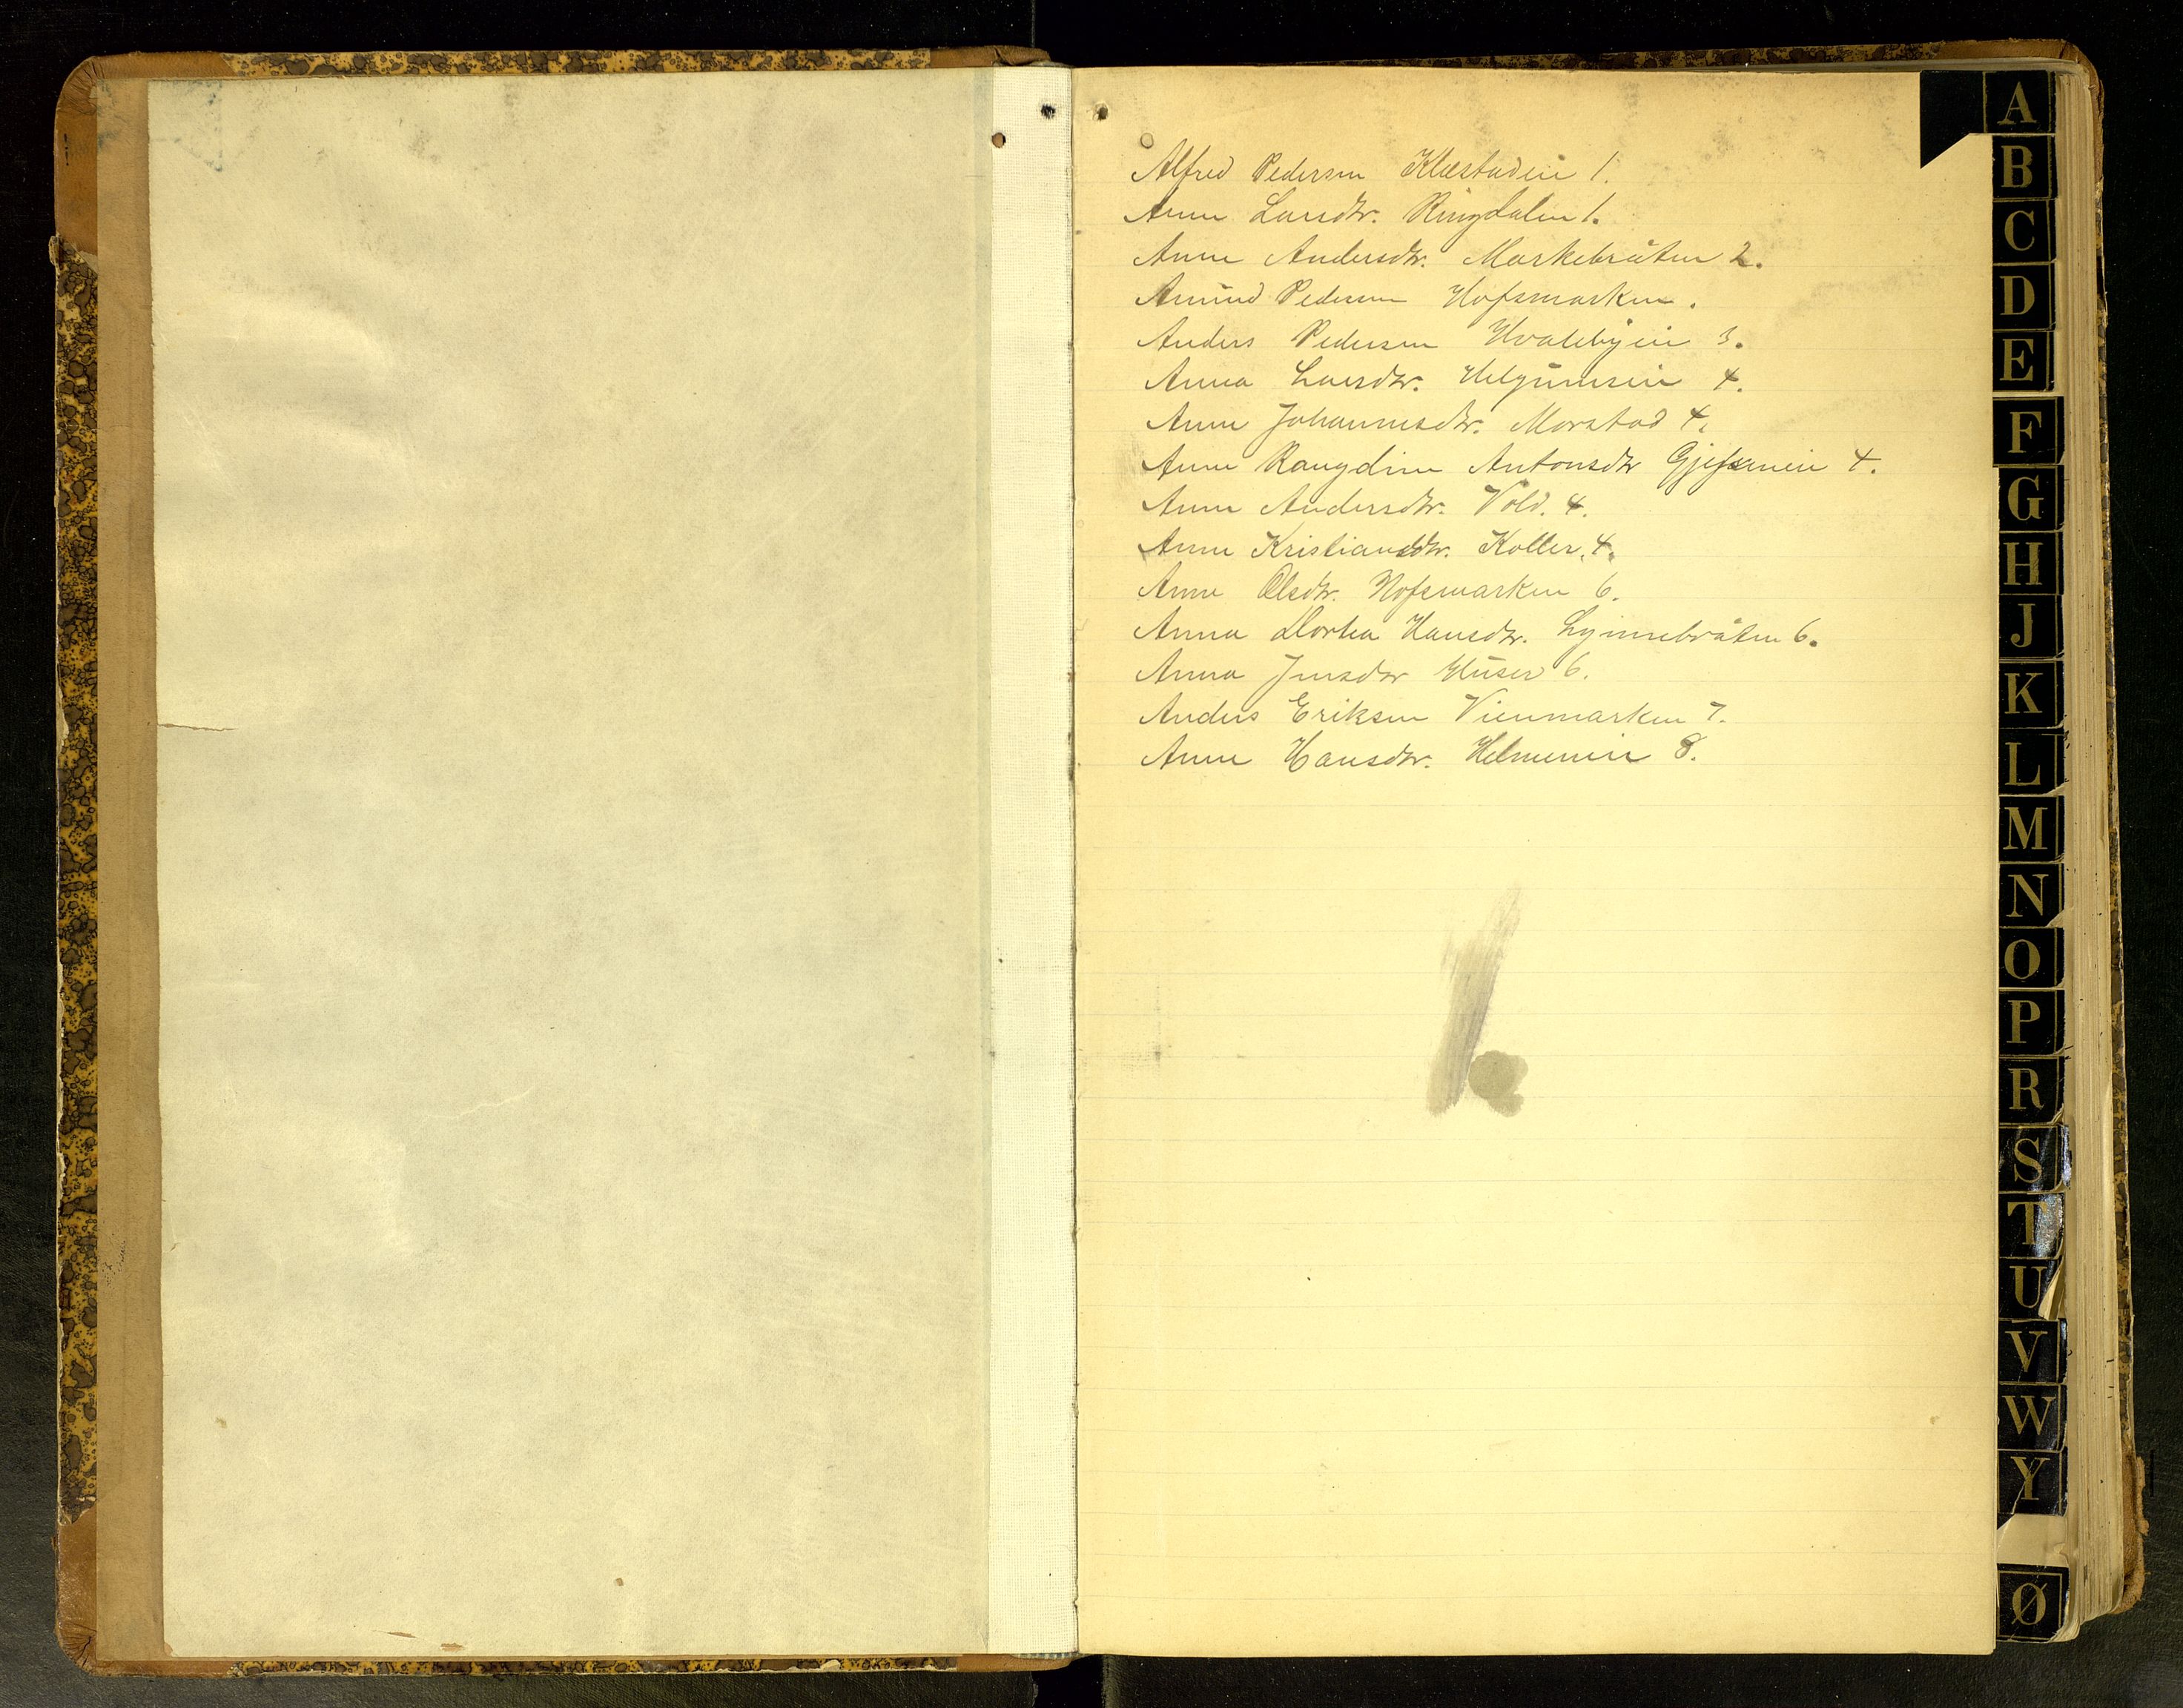 Alfred Pedersen Klæstadeie 1.
Anne Larsdtr. Ringdalen 1.
Anne Andersdtr. Markebråten 2.
Amund Pedersen Hofsmarken.
Anders Pedersen Hvalebyeie 3.
Anna Larsdtr. Helgumseie 4.
Anne Johannesdtr. Morstad 4.
Anne Rangdine Antonsdtr Gjefseneie 4.
Anne Andersdtr. Vold. 4.
Anne Kristiansdtr. Koller. 4.
Anne Olsdtr. Hofsmarken 6.
Anna Dortea Hansdtr. Lynnebråten 6.
Anna Jensdtr Huser 6.
Anders Eriksen Vienmarken 7.
Anne Hansdtr. Helmeneie 8.
A
B
C
D
E
F
G
H
J
K
L
M
N
O
P
R
S
T
U
V
W
Y
Ø